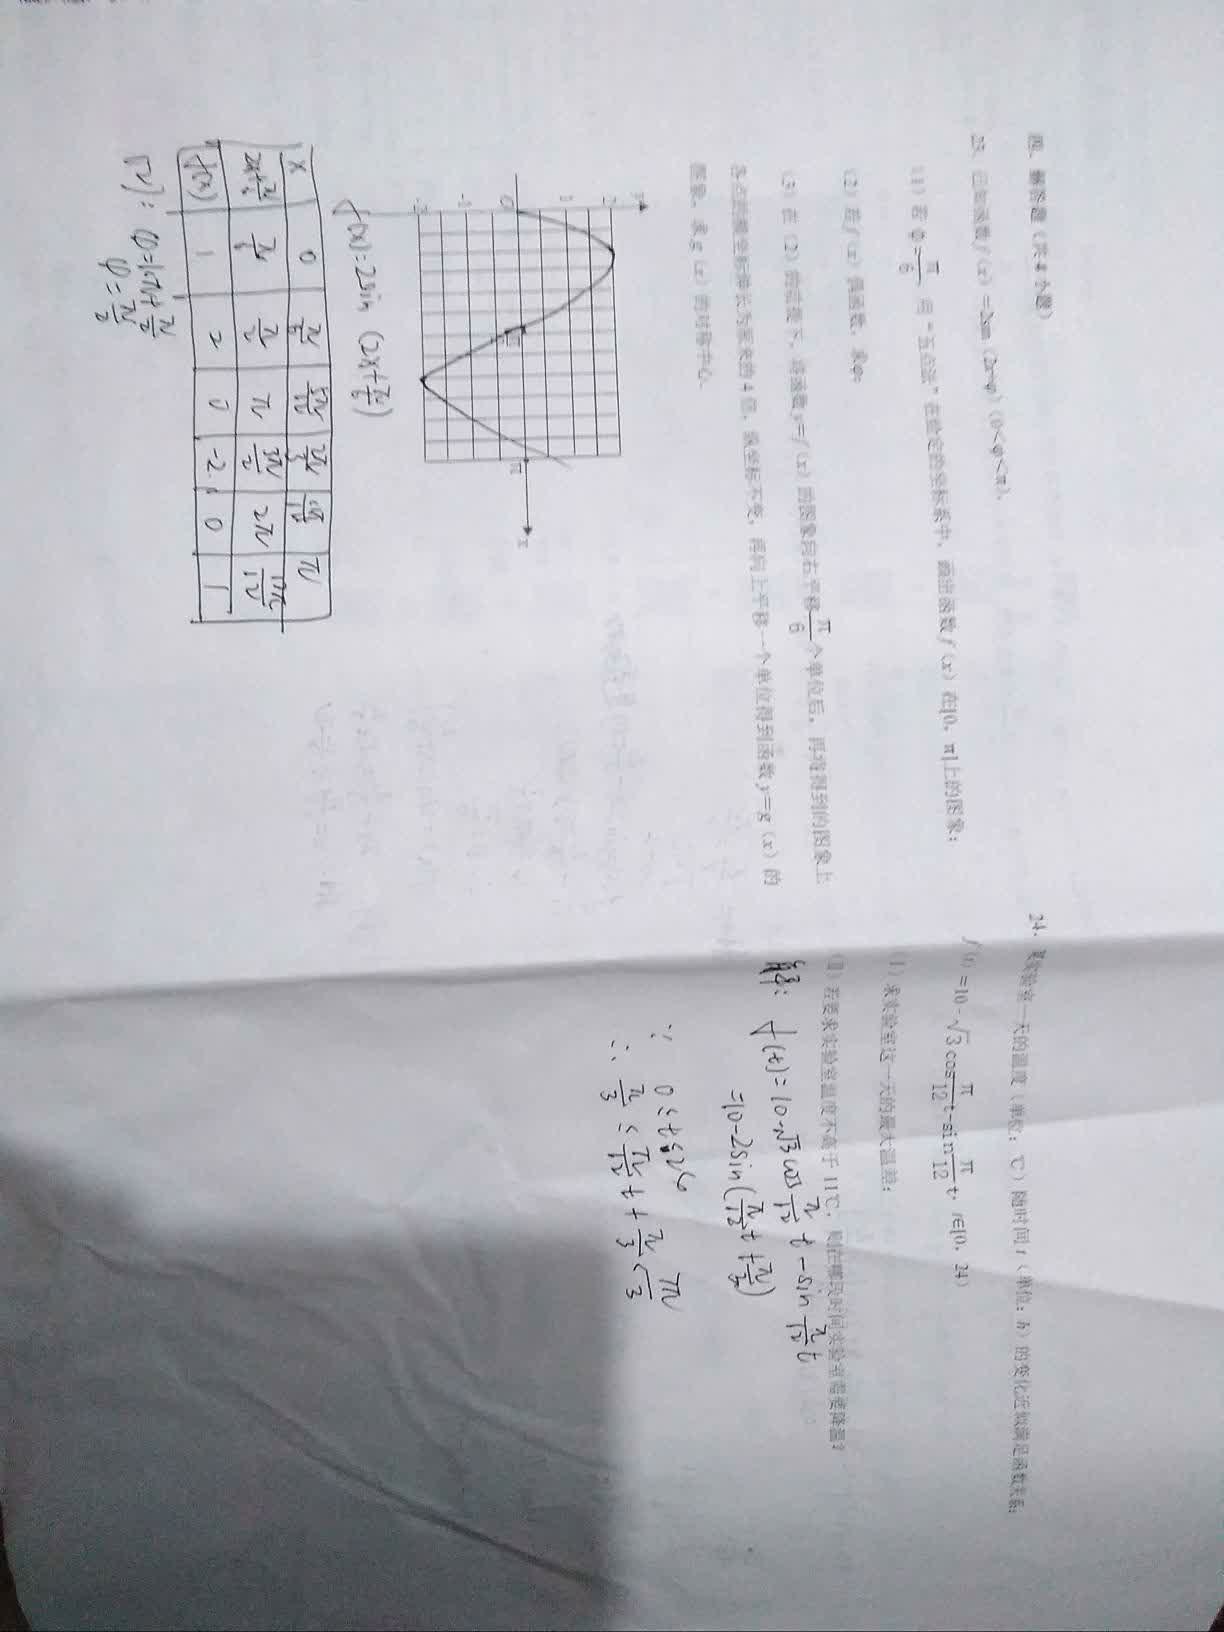 四、解答题（共4小题）
23、已知函数f（x）=2sin（2x+φ）（0<φ<π）.
（1）若φ=π/6，用“五点法”在给定的坐标系中，画出函数f（x）在[0，π]上的图象；
（2）若f（x）偶函数，求φ；
（3）在（2）的前提下，将函数y=f（x）的图象向右平移π/6个单位后，再将得到的图象上
各点的横坐标伸长为原来的4倍，纵坐标不变，再向上平移一个单位得到函数y=g（x）的
图象，求g（x）的对称中心.
y
2
1
O
-1
-2
π
x
f(x)=2sin（2x+π/6)
x 0 π/6 5π/12 2π/3 11π/12 π
2x+π/6 π/6 π/2 π 3π/2 2π 13π/12
f(x) 1 2 0 -2 0 1
(2): φ=kπ+π/2
φ=π/2
24、某实验室一天的温度（单位：℃）随时间t（单位：h）的变化近似满足函数关系：
f(t)=10-√3cosπ/12t-sinπ/12t，t∈[0，24）
（Ⅰ）求实验室这一天的最大温差；
（Ⅱ）若要求实验室温度不高于11℃，则在哪段时间实验室需要降温？
解：f(t)=10-√3cosπ/12t-sinπ/12t
=10-2sin(π/12t+π/3)
∵ 0≤t≤24
∴ π/3≤π/12t+π/3<7π/3